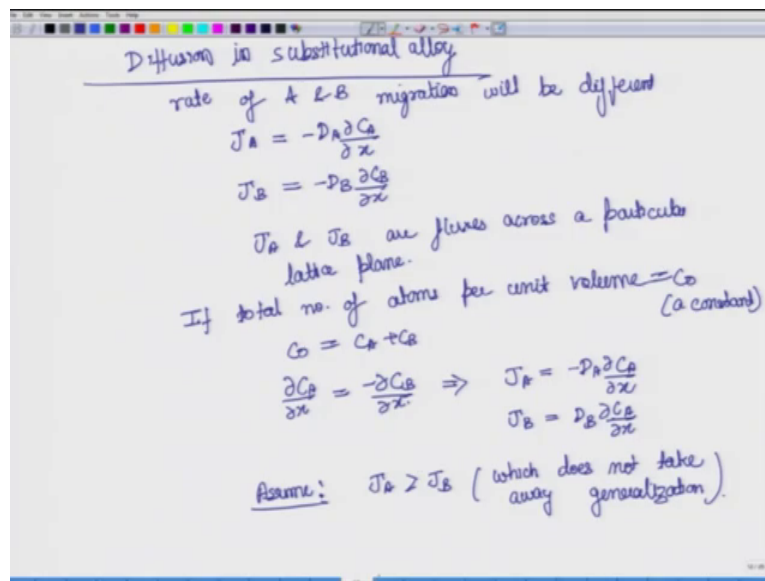 Diffusion in substitutional alloy
rate of A & B migration will be different
J_A = -D_A ∂C_A/∂x
J_B = -D_B ∂C_B/∂x
J_A & J_B are fluxes across a particular
lattice plane.
If total no. of atoms per unit volume = C_0
(a constant)
C_0 = C_A + C_B
∂C_A/∂x = -∂C_B/∂x ⇒ J_A = -D_A ∂C_A/∂x
J_B = D_B ∂C_B/∂x
Assume: J_A > J_B (which does not take
away generalization)